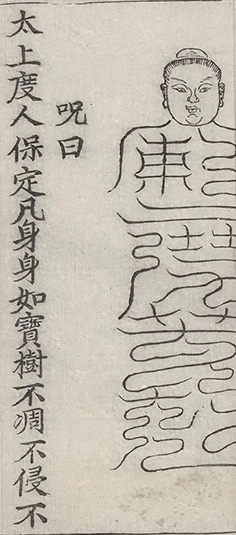 呪曰
太上度人保定凡身身如寶樹不凋不侵不